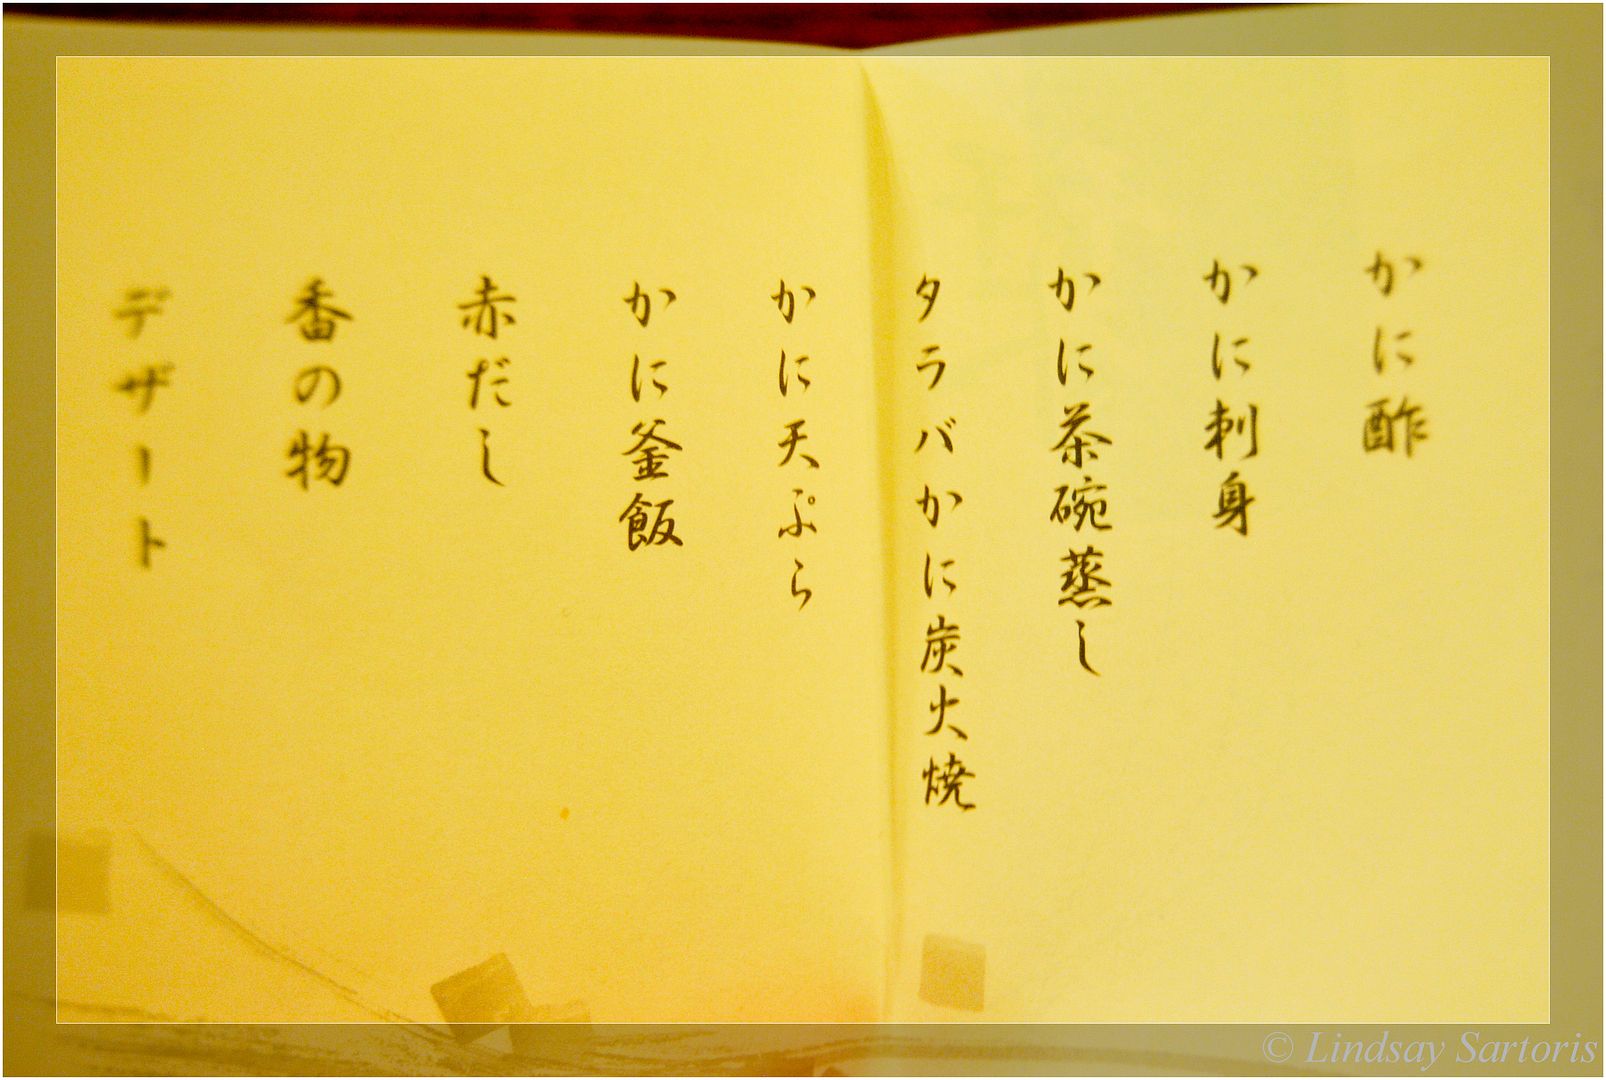 かに酢
かに刺身
かに茶碗蒸し
タラバかに炭火焼
かに天ぷら
かに釜飯
赤だし
香の物
デザート
© Lindsay Sartoris